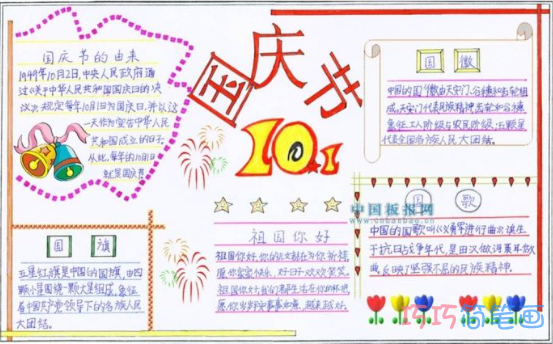 国庆节的由来
1949年10月2日,中央人民政府通
过《关于中华人民共和国国庆日的决
议》,规定每年10月1日为国庆日,并以这
一天作为宣告中华人民
共和国成立的日子。
从此,每年的10月1日
就是国庆节
国庆节
10.1
国徽
中国的国徽由天安门、谷穗和齿轮组
成,天安门代表民族精神,齿轮和谷穗
象征工人阶级与农民阶级,五颗星
代表全国各族人民大团结。
国旗
五星红旗是中国的国旗,由四
颗小星围绕一颗大星组成,象征
着中国共产党领导下的各族人民
大团结。
祖国你好
祖国你好,
国歌
中国的国歌叫《义勇军进行曲》,诞生
于抗日战争年代,是田汉做词聂耳做
曲,反映了坚强不屈的民族精神。
中国板报网
www.cnbanbao.cn
巧巧简笔画